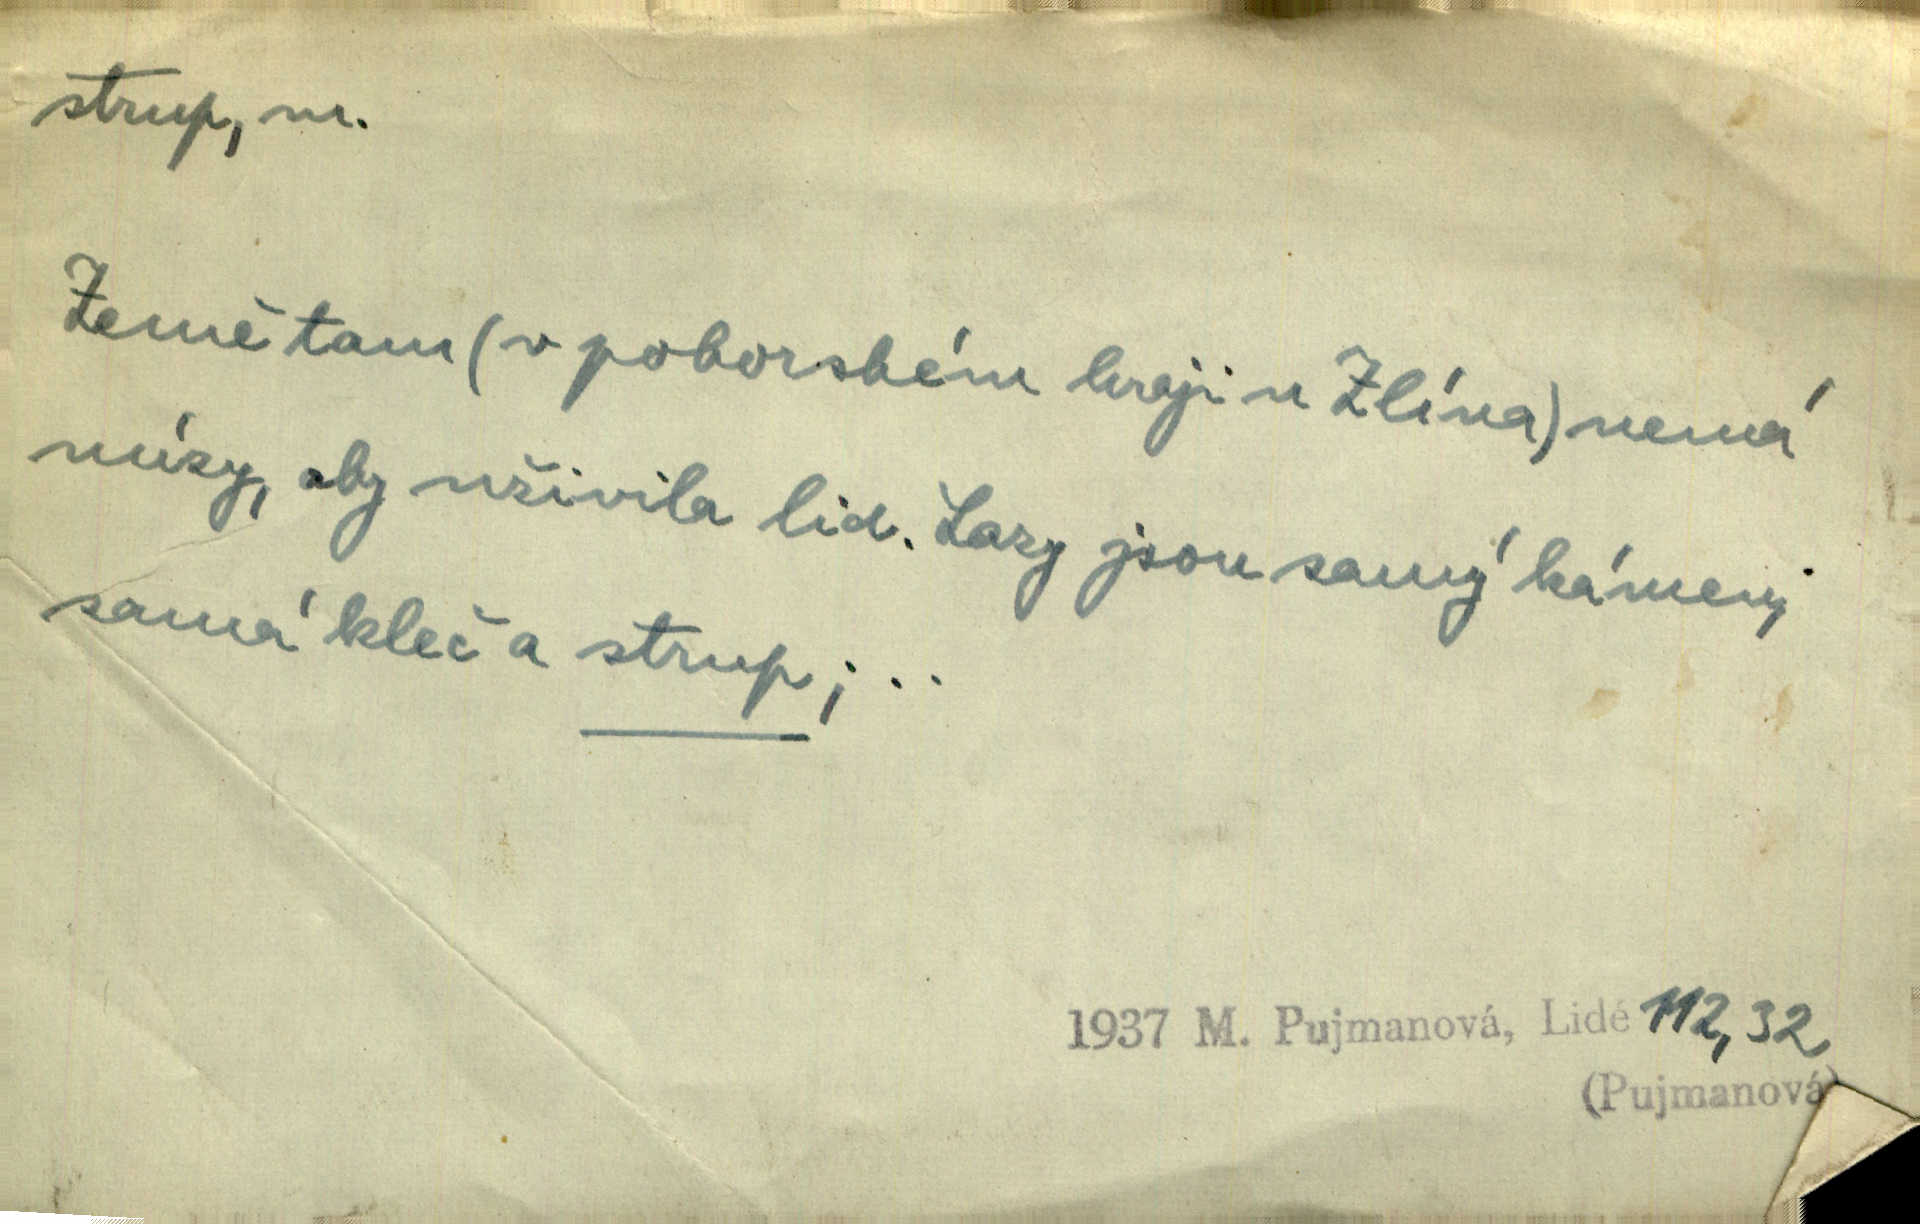 strup, m.
Země tam (v pohorském kraji u Zlína) nemá
mízy, aby uživila lid. Lazy jsou samý kámen,
samá kleč a strup; ..
1937 M. Pujmanová, Lidé 112, 32
(Pujmanová)